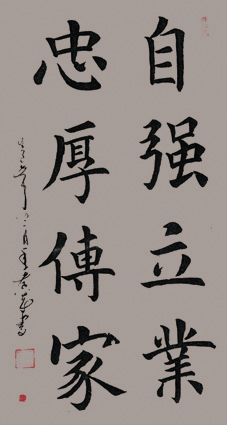 自强立業
忠厚傳家